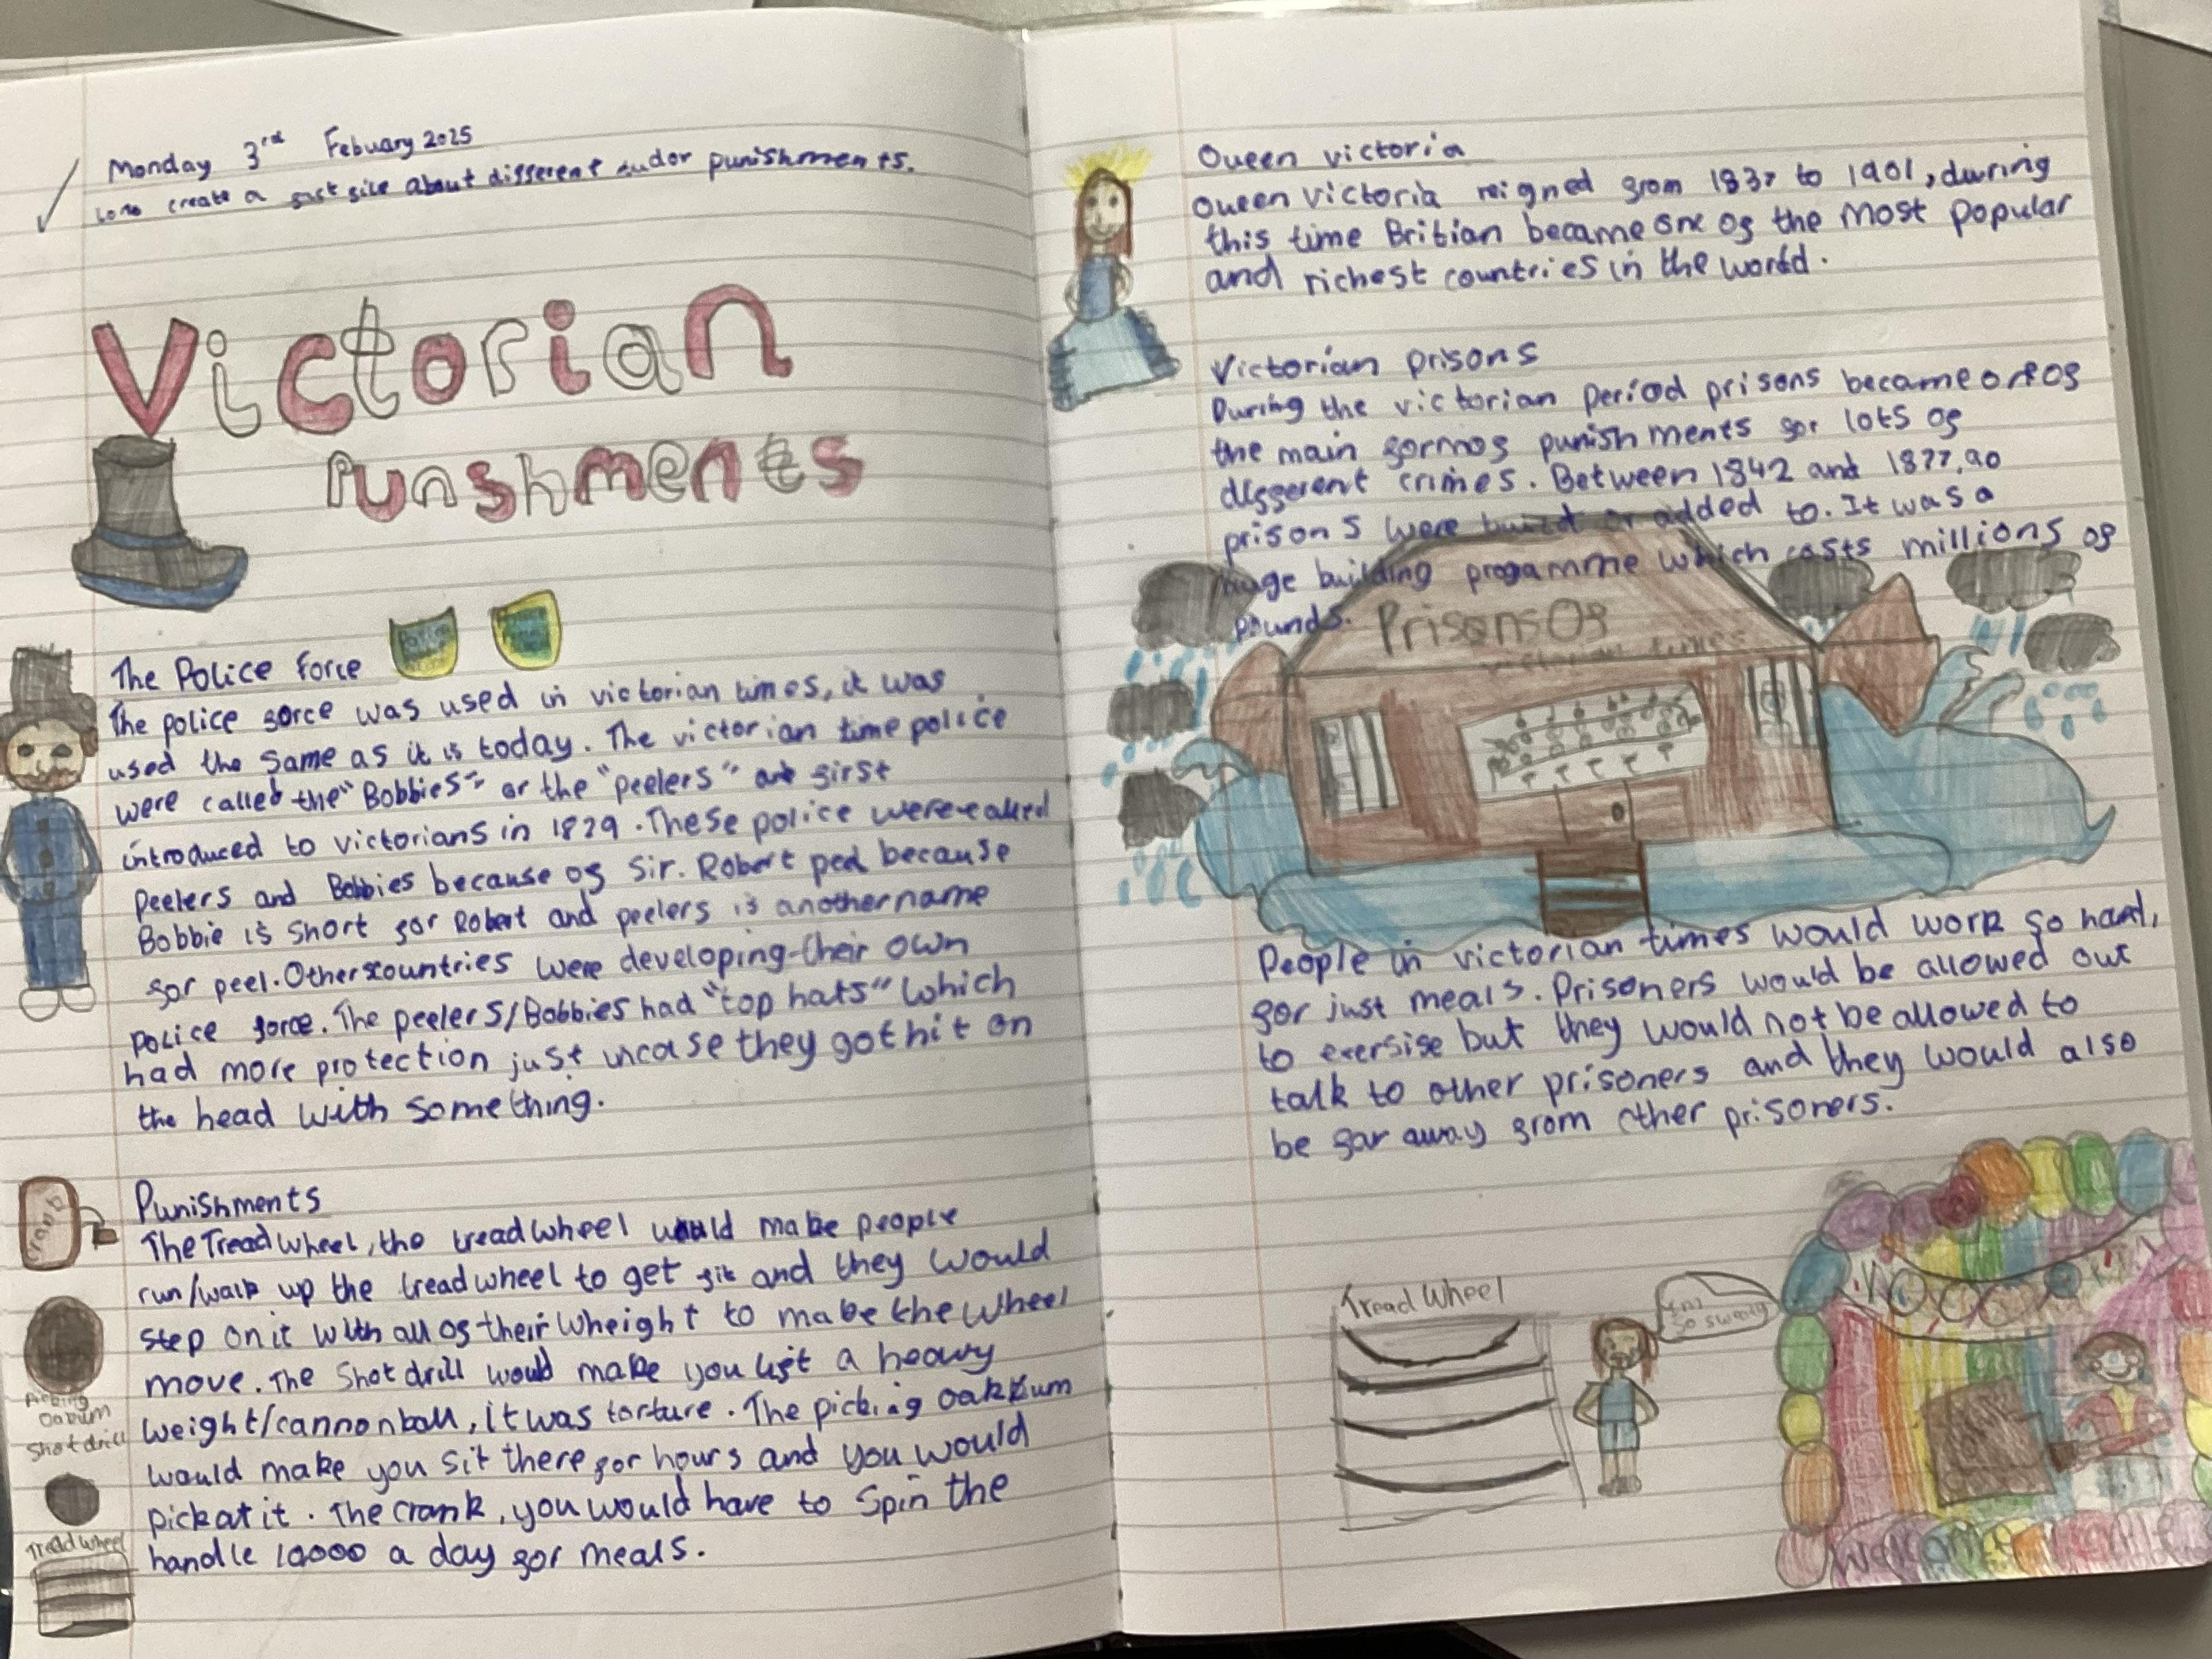 Monday 3rd Febuary 2025
create a fact file about different tudor punishments.
Victorian
Punshments
The Police Force
The police force was used in victorian times, it was
used the same as it is today. The victorian time police
were called the "Bobbies" or the "peelers" first
introduced to victorians in 1829. These police were called
Peelers and Bobbies because of Sir. Robert peel because
Bobbie is short for Robert and peelers is another name
for peel. Other countries were developing their own
Police force. The peelers/Bobbies had "top hats" which
had more protection just incase they got hit on
the head with something.
Punishments
The Tread wheel, the treadwheel would make people
run/walk up the treadwheel to get fit and they would
step on it with all of their wheight to make the wheel
move. The Shot drill would make you lift a heavy
weight/cannonball, it was torture. The picking oakkum
would make you sit there for hours and you would
pick at it. The crank, you would have to spin the
handle 10000 a day for meals.
Crank
Picking
Oakum
Shot drill
Tread wheel
Queen victoria
Queen victoria reigned from 1837 to 1901, during
this time Britian became one of the most popular
and richest countries in the world.
Victorian prisons
During the victorian period prisons became one of
the main forms of punishments for lots of
different crimes. Between 1842 and 1877, 90
prisons were build or added to. It was a
huge building progamme which costs millions of
pounds.
Prisons Of
victorian times
People in victorian times would work so hard,
for just meals. Prisoners would be allowed out
to exersise but they would not be allowed to
talk to other prisoners and they would also
be far away from other prisoners.
Tread Wheel
I'm
so sweaty